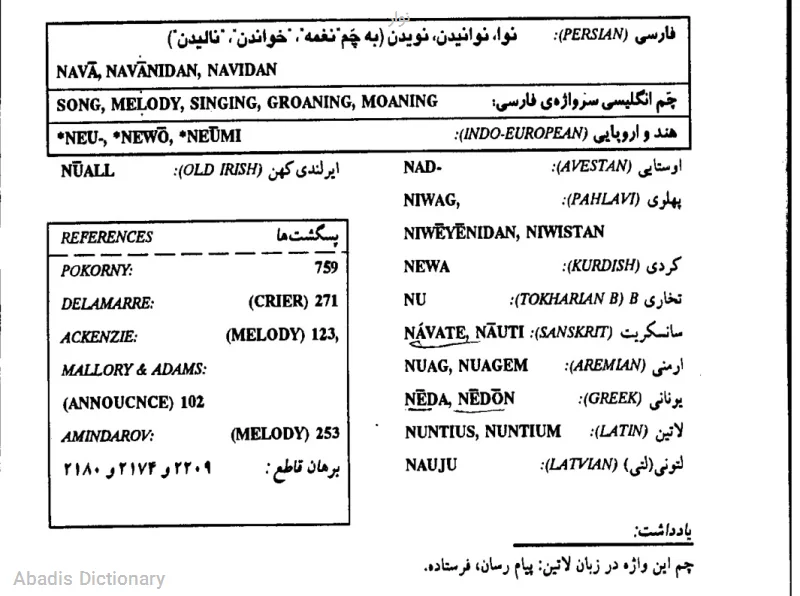 نوار
فارسی (PERSIAN): نوا، نوانیدن، نویدن (به چَم "نغمه"، "خواندن"، "نالیدن")
NAVĀ, NAVĀNIDAN, NAVIDAN
چَم انگلیسی سَرواژه‌ی فارسی: SONG, MELODY, SINGING, GROANING, MOANING
هند و اروپایی (INDO-EUROPEAN): *NEU-, *NEWŌ, *NEŪMI
اوستایی (AVESTAN): NAD-
ایرلندی کهن (OLD IRISH): NŪALL
پهلوی (PAHLAVI): NIWAG,
NIWĒYĒNIDAN, NIWISTAN
کردی (KURDISH): NEWA
تخاری B (TOKHARIAN B): NU
سانسکریت (SANSKRIT): NÁVATE, NĀUTI
ارمنی (AREMIAN): NUAG, NUAGEM
یونانی (GREEK): NĒDA, NĒDŌN
لاتین (LATIN): NUNTIUS, NUNTIUM
لتونی(لتی) (LATVIAN): NAUJU
REFERENCES پسگشت‌ها
POKORNY: 759
DELAMARRE: (CRIER) 271
ACKENZIE: (MELODY) 123,
MALLORY & ADAMS:
(ANNOUCNCE) 102
AMINDAROV: (MELODY) 253
برهان قاطع : ۲۲۰۹ و ۲۱۷۴ و ۲۱۸۰
یادداشت:
چم این واژه در زبان لاتین: پیام رسان، فرستاده.
Abadis Dictionary